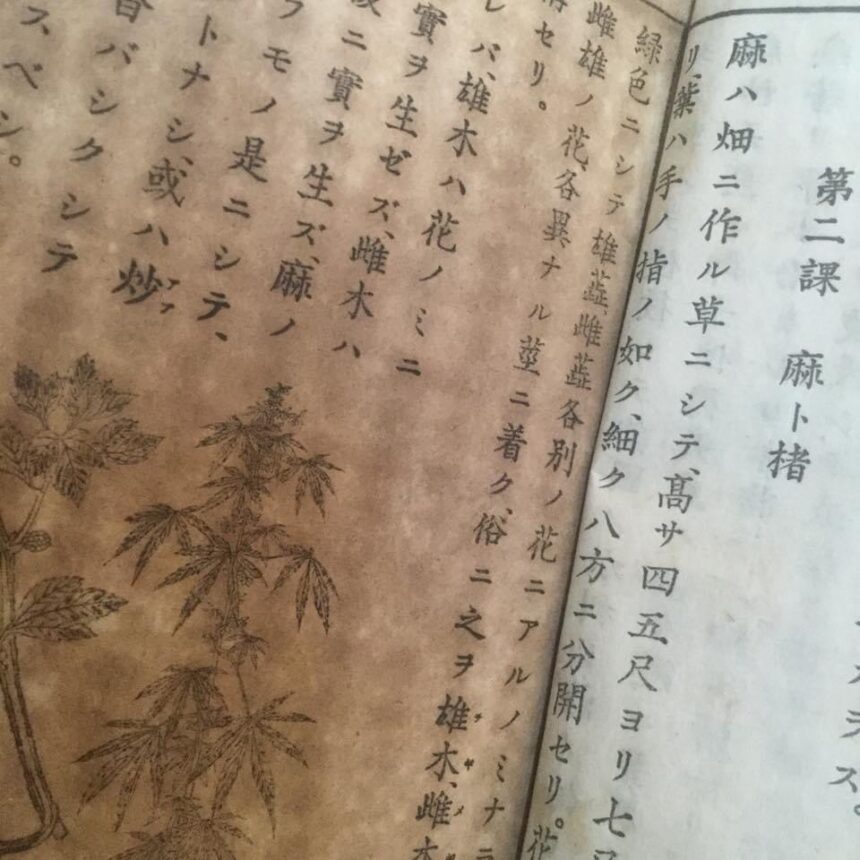 ス。
第二課　麻ト楮
麻ハ畑ニ作ル草ニシテ、高サ四五尺ヨリ七
リ、葉ハ手ノ指ノ如ク、細ク八方ニ分開セリ。花
緑色ニシテ雄蕋、雌蕋各別ノ花ニアルノミナラ
雌雄ノ花、各異ナル莖ニ着ク、俗ニ之ヲ雄木、雌木
セリ。
レバ、雄木ハ花ノミニ
實ヲ生ゼズ、雌木ハ
ニ實ヲ生ズ、麻ノ
フモノ是ニシテ、
トナシ、或ハ炒
バシクシテ
スベシ。